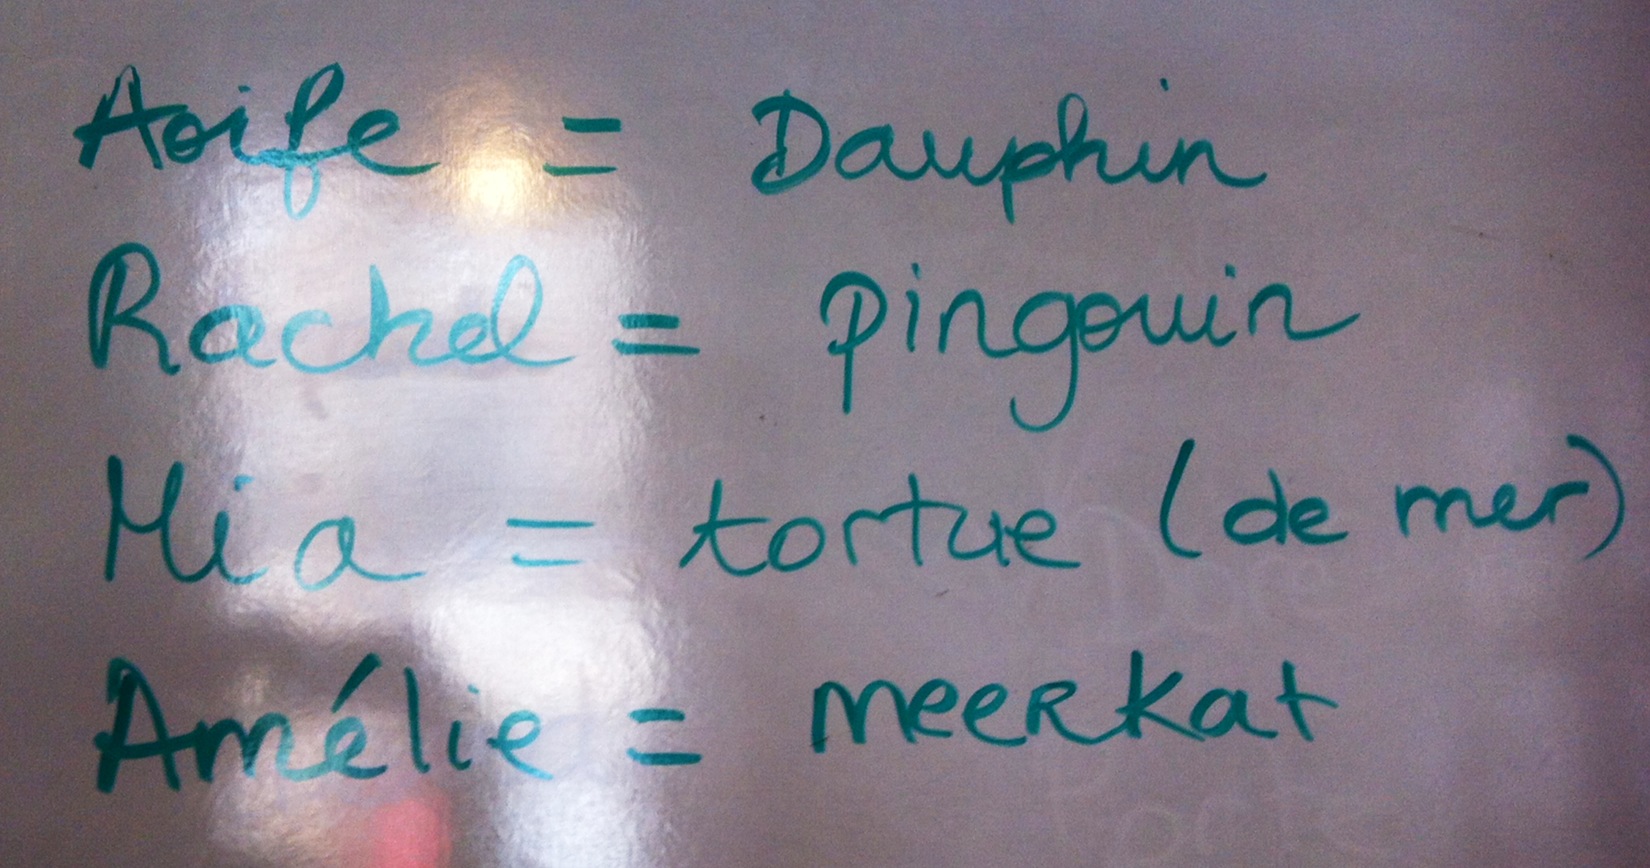 Aoife = Dauphin
Rachel = pingouin
Mia = tortue (de mer)
Amélie = meerkat